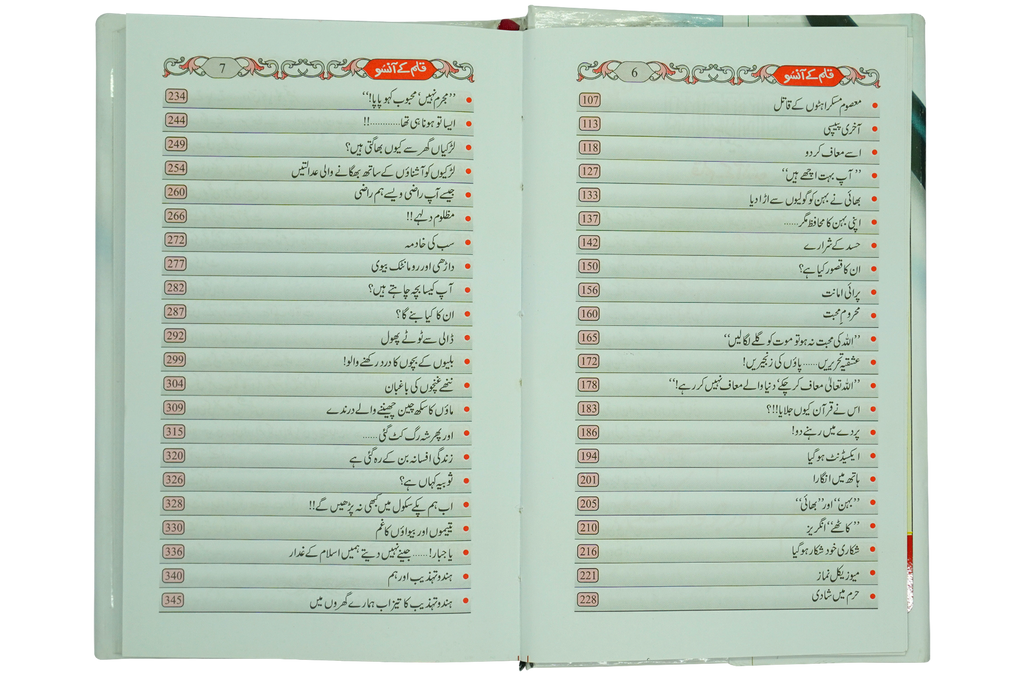 قلم کے آنسو 6
معصوم مسکراہٹوں کے قاتل 107
آخری پیپسی 113
اسے معاف کر دو 118
’’ آپ بہت اچھے ہیں‘‘ 127
بھائی نے بہن کو گولیوں سے اڑا دیا 133
اپنی بہن کا محافظ مگر...... 137
حسد کے شرارے 142
ان کا قصور کیا ہے؟ 150
پرائی امانت 156
محروم محبت 160
’’اللہ کی محبت نہ ہو تو موت کو گلے لگا لیں‘‘ 165
عشقیہ تحریریں...... پاؤں کی زنجیریں! 172
’’اللہ تعالیٰ معاف کر چکے‘ دنیا والے معاف نہیں کر رہے!‘‘ 178
اس نے قرآن کیوں جلایا!!؟ 183
پردے میں رہنے دو! 186
ایکسیڈنٹ ہو گیا 194
ہاتھ میں انگارا 201
’’بہن‘‘ اور ’’بھائی‘‘ 205
’’ کاٹھے‘‘ انگریز 210
شکاری خود شکار ہو گیا 216
میوزیکل نماز 221
حرم میں شادی 228
قلم کے آنسو 7
’’مجرم نہیں‘ محبوب کہو پاپا!‘‘ 234
ایسا تو ہونا ہی تھا............!! 244
لڑکیاں گھر سے کیوں بھاگتی ہیں؟ 249
لڑکیوں کو آشناؤں کے ساتھ بھگانے والی عدالتیں 254
جیسے آپ راضی ویسے ہم راضی 260
مظلوم دلہے!! 266
سب کی خادمہ 272
داڑھی اور رومانٹک بیوی 277
آپ کیسا بچہ چاہتے ہیں؟ 282
ان کا کیا بنے گا؟ 287
ڈالی سے ٹوٹے پھول 292
بلیوں کے بچوں کا درد رکھنے والو! 299
ننھے غنچوں کی باغبان 304
ماؤں کا سکھ چین چھیننے والے درندے 309
اور پھر شہ رگ کٹ گئی...... 315
زندگی افسانہ بن کے رہ گئی ہے 320
ثوبیہ کہاں ہے؟ 326
اب ہم پکے سکول میں کبھی نہ پڑھیں گے!! 328
یتیموں اور بیواؤں کا غم 330
یا جبار!...... جینے نہیں دیتے ہمیں اسلام کے غدار 336
ہندو تہذیب اور ہم 340
ہندو تہذیب کا تیزاب ہمارے گھروں میں 345